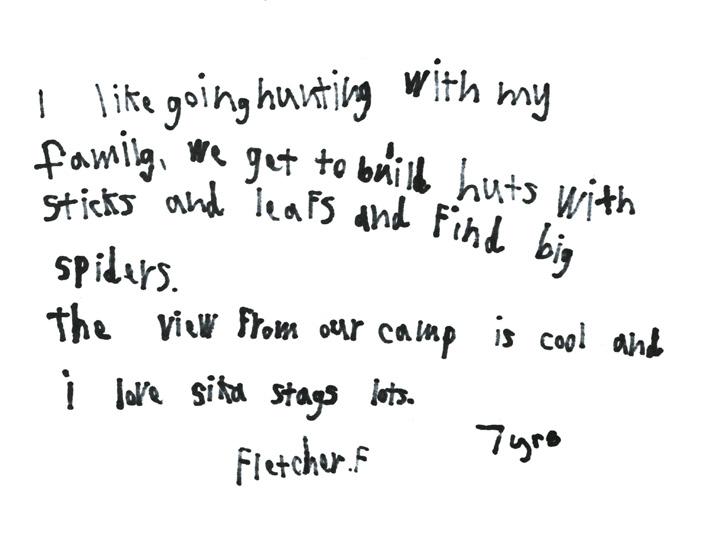 I like going hunting with my
family. We get to build huts with
sticks and leafs and find big
spiders.
the view from our camp is cool and
i love sika stags lots.
Fletcher.F 7yrs